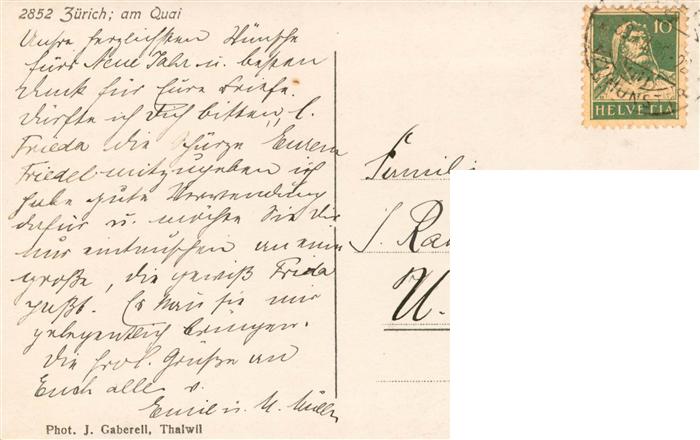 2852 Zürich; am Quai
Unsre herzlichsten Wünsche
fürs Neue Jahr u. besten
Dank für Eure Briefe.
Dürfte ich Dich bitten, l.
Frieda die Schürze Eurem
Friedel mitzugeben ich
habe gute Verwendung
dafür u. möchte Sie Dir
nur eintauschen an eine
große, die gewiß Frieda
paßt. Er kann sie mir
gelegentlich bringen.
Euch alle v.
Emil u. M. Müller
Phot. J. Gaberell, Thalwil
10
HELVETIA
Famili
J. Ra
U.